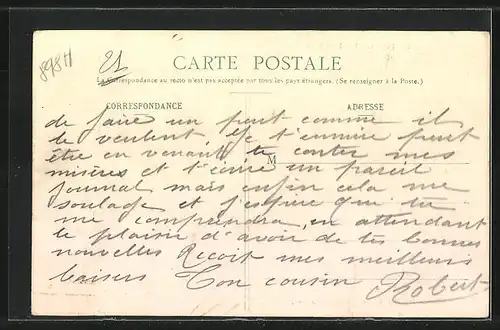 898H
21
CARTE POSTALE
La Correspondance au recto n'est pas acceptée par tous les pays étrangers. (Se renseigner à la Poste.)
CORRESPONDANCE
ADRESSE
M
de faire un pont comme il
le veulent je t'ennuie peut
être en venant te conter mes
misères et t'écrire un pareil
journal mais enfin cela me
soulage et j'espère que tu
me comprendra, en attendant
le plaisir d'avoir de tes bonnes
nouvelles Reçoit mes meilleurs
baisers Ton cousin Robert